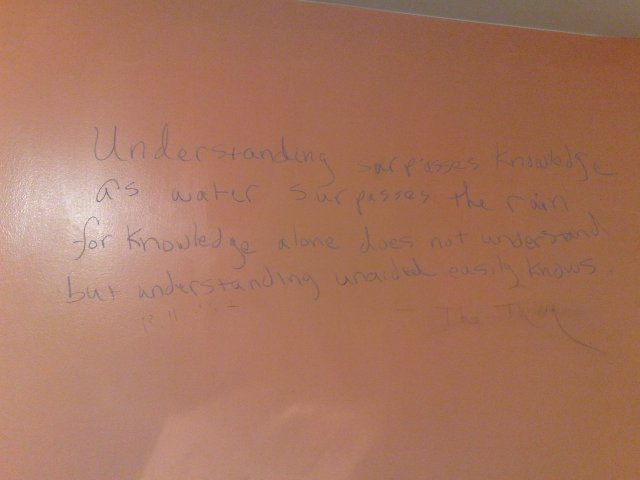 Understanding surpasses knowledge
as water surpasses the rain
for knowledge alone does not understand
but understanding unaided easily knows.
The